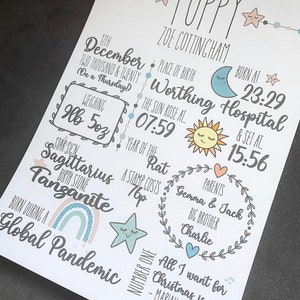 POPPY
ZOE COTTINGHAM
11TH
December
TWO THOUSAND & TWENTY
(On a Thursday)
WEIGHING
9lb 5oz
STAR SIGN
Sagittarius
Tanzanite
BORN DURING A
Global Pandemic
PLACE OF BIRTH
Worthing Hospital
THE SUN ROSE AT
07:59
YEAR OF THE
Rat
A STAMP COSTS
76p
BORN AT
23:29
& SET AT
15:56
PARENTS
Gemma & Jack
BIG BROTHER
Charlie
NUMBER ONE
All I want for
Christmas is